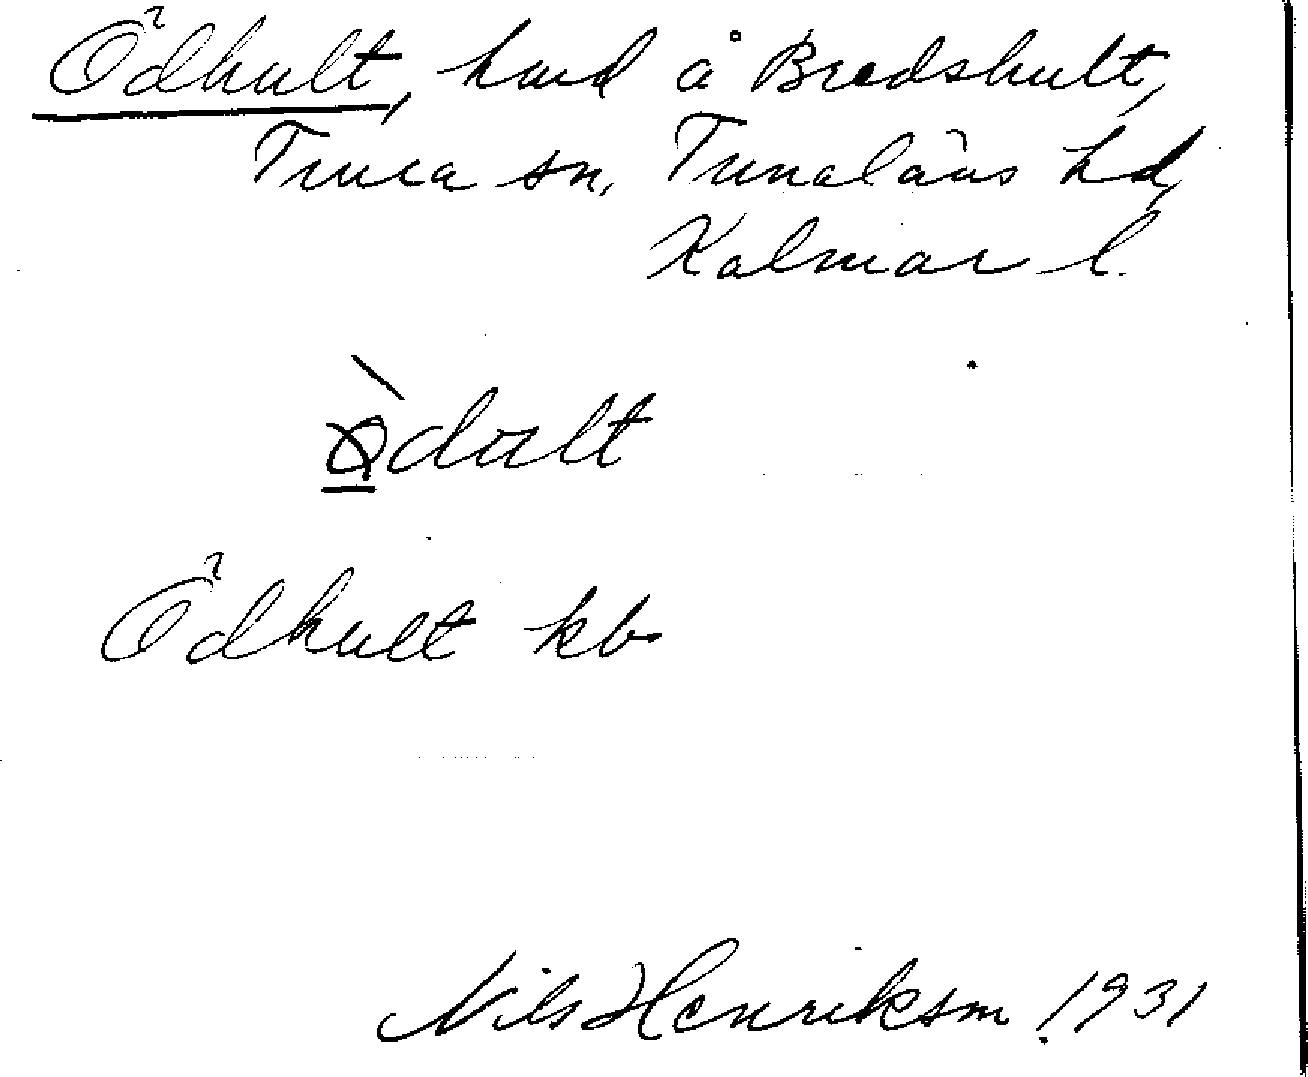 Ödhult, hmd å Bredshult,
Tuna sn, Tunaläns hd,
Kalmar l.
Ödhult kb
Nils Henrikson 1931